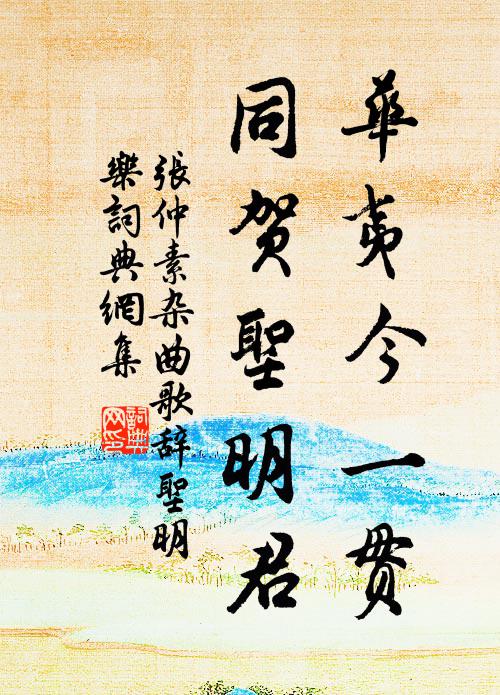 華夷今一貫
同賀聖明君
張仲素杂曲歌辞聖明
樂詞典網集
詞典
网印